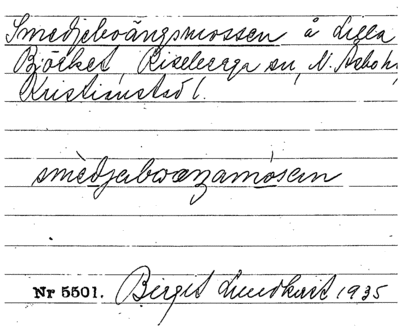 Smedjeboängsmossen å Lilla
Böcket, Riseberga sn, N. Åsbo h,
Kristianstad l.
smedjeboängamosen
Nr 5501. Birgit Lundkvist 1935